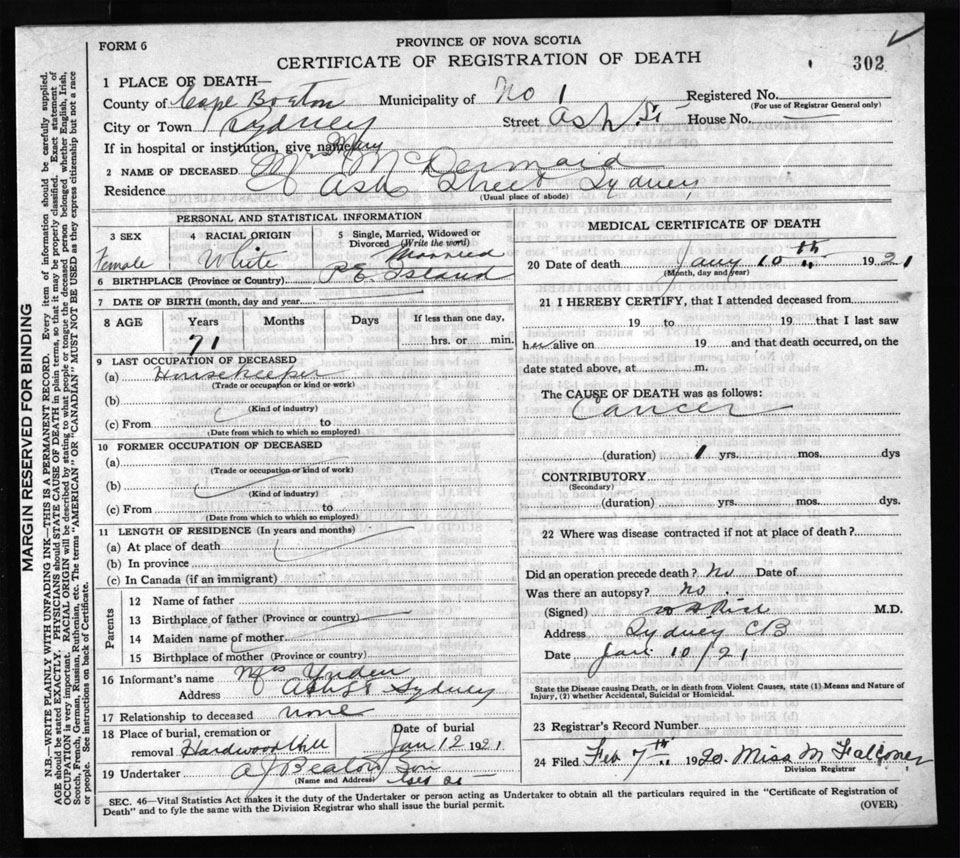 FORM 6
PROVINCE OF NOVA SCOTIA
CERTIFICATE OF REGISTRATION OF DEATH
302
1 PLACE OF DEATH—
County of Cape Breton Municipality of No 1 Registered No.
(For use of Registrar General only)
City or Town Sydney Street Ash St House No. —
If in hospital or institution, give name
2 NAME OF DECEASED Mrs Mary McDermaid
Residence Ash Street Sydney
(Usual place of abode)
PERSONAL AND STATISTICAL INFORMATION
3 SEX Female
4 RACIAL ORIGIN White
5 Single, Married, Widowed or Divorced (Write the word) Married
6 BIRTHPLACE (Province or Country) P E Island
7 DATE OF BIRTH (month, day and year)
8 AGE Years Months Days If less than one day,
71 hrs. or min.
9 LAST OCCUPATION OF DECEASED
(a) Housekeeper
(Trade or occupation or kind or work)
(b)
(Kind of industry)
(c) From to
(Date from which to which so employed)
10 FORMER OCCUPATION OF DECEASED
(a)
(Trade or occupation or kind of work)
(b)
(Kind of industry)
(c) From to
(Date from which to which so employed)
11 LENGTH OF RESIDENCE (In years and months)
(a) At place of death
(b) In province
(c) In Canada (if an immigrant)
Parents
12 Name of father
13 Birthplace of father (Province or country)
14 Maiden name of mother
15 Birthplace of mother (Province or country)
16 Informant's name Mrs
Address Ash St Sydney
17 Relationship to deceased none
18 Place of burial, cremation or removal Hardwood Hill Date of burial Jan 12 1921
19 Undertaker A J Beaton Son
(Name and Address)
MEDICAL CERTIFICATE OF DEATH
20 Date of death Jany 10th 1921
(Month, day and year)
21 I HEREBY CERTIFY, that I attended deceased from
19 to 19 that I last saw
her alive on 19 and that death occurred, on the
date stated above, at m.
The CAUSE OF DEATH was as follows:
Cancer
(duration) 1 yrs. mos. dys
CONTRIBUTORY
(Secondary)
(duration) yrs. mos. dys.
22 Where was disease contracted if not at place of death?
Did an operation precede death? No Date of
Was there an autopsy? No.
(Signed) M.D.
Address Sydney CB
Date Jan 10/21
State the Disease causing Death, or in death from Violent Causes, state (1) Means and Nature of Injury, (2) whether Accidental, Suicidal or Homicidal.
23 Registrar's Record Number
24 Filed Feb 7th 1920. Miss M Falconer
Division Registrar
SEC. 46—Vital Statistics Act makes it the duty of the Undertaker or person acting as Undertaker to obtain all the particulars required in the "Certificate of Registration of
Death" and to fyle the same with the Division Registrar who shall issue the burial permit.
(OVER)
MARGIN RESERVED FOR BINDING
N.B.—WRITE PLAINLY WITH UNFADING INK—THIS IS A PERMANENT RECORD. Every item of information should be carefully supplied.
AGE should be stated EXACTLY. PHYSICIANS should STATE CAUSE OF DEATH in plain terms, so that it may be properly classified. Exact statement of
OCCUPATION is very important. RACIAL ORIGIN will be described by stating to what people or tongue the deceased person belonged whether English, Irish,
Scotch, French, German, Russian, Ruthenian, etc. The terms "AMERICAN" OR "CANADIAN" MUST NOT BE USED as they express citizenship but not a race
or people. See instructions on back of Certificate.